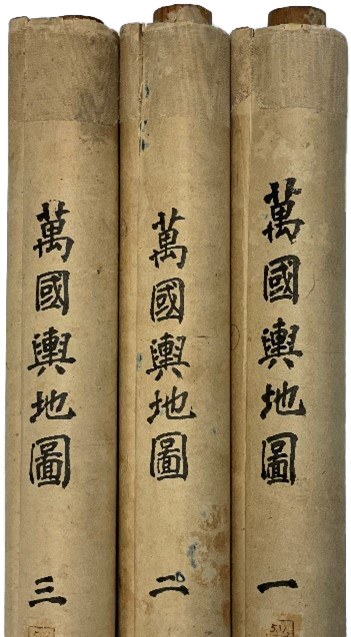 萬國輿地圖 一
萬國輿地圖 二
萬國輿地圖 三